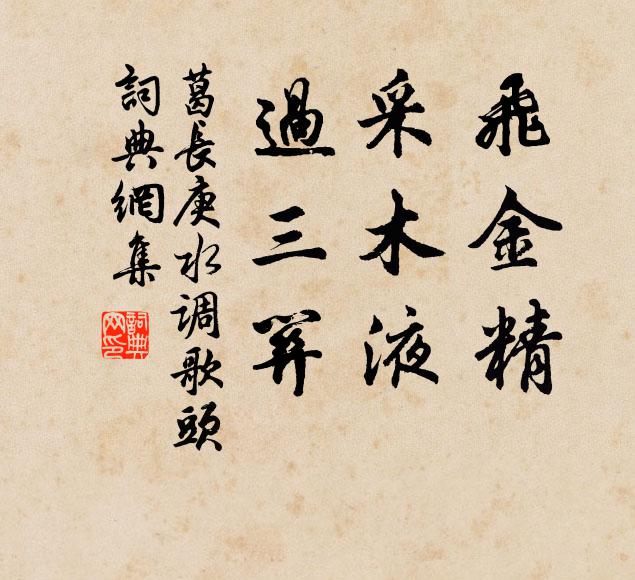 飛金精
采木液
過三關
葛長庚水调歌頭
詞典網集
詞典
网印